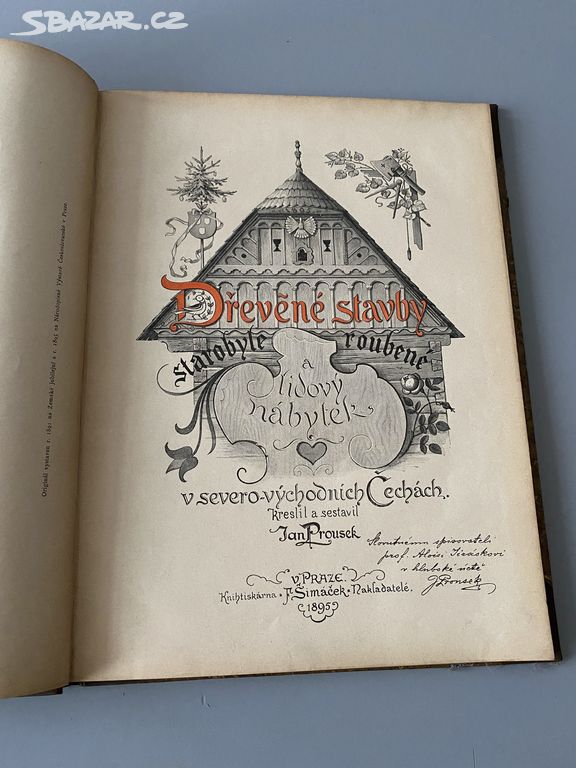 SBAZAR.CZ
Originál vystaven r. 1891 na Zemské jubilejní a r. 1895 na Národopisné Výstavě Českoslovanské v Praze.
Dřevěné stavby
starobyle roubené
a
lidový
nábytek
v severo-východních Čechách.
Kreslil a sestavil
Jan Prousek
Slovutnému spisovateli
prof. Aloisi Jiráskovi
v hluboké úctě
JProusek
V PRAZE.
Knihtiskárna • F. Šimáček • Nakladatelé.
1895